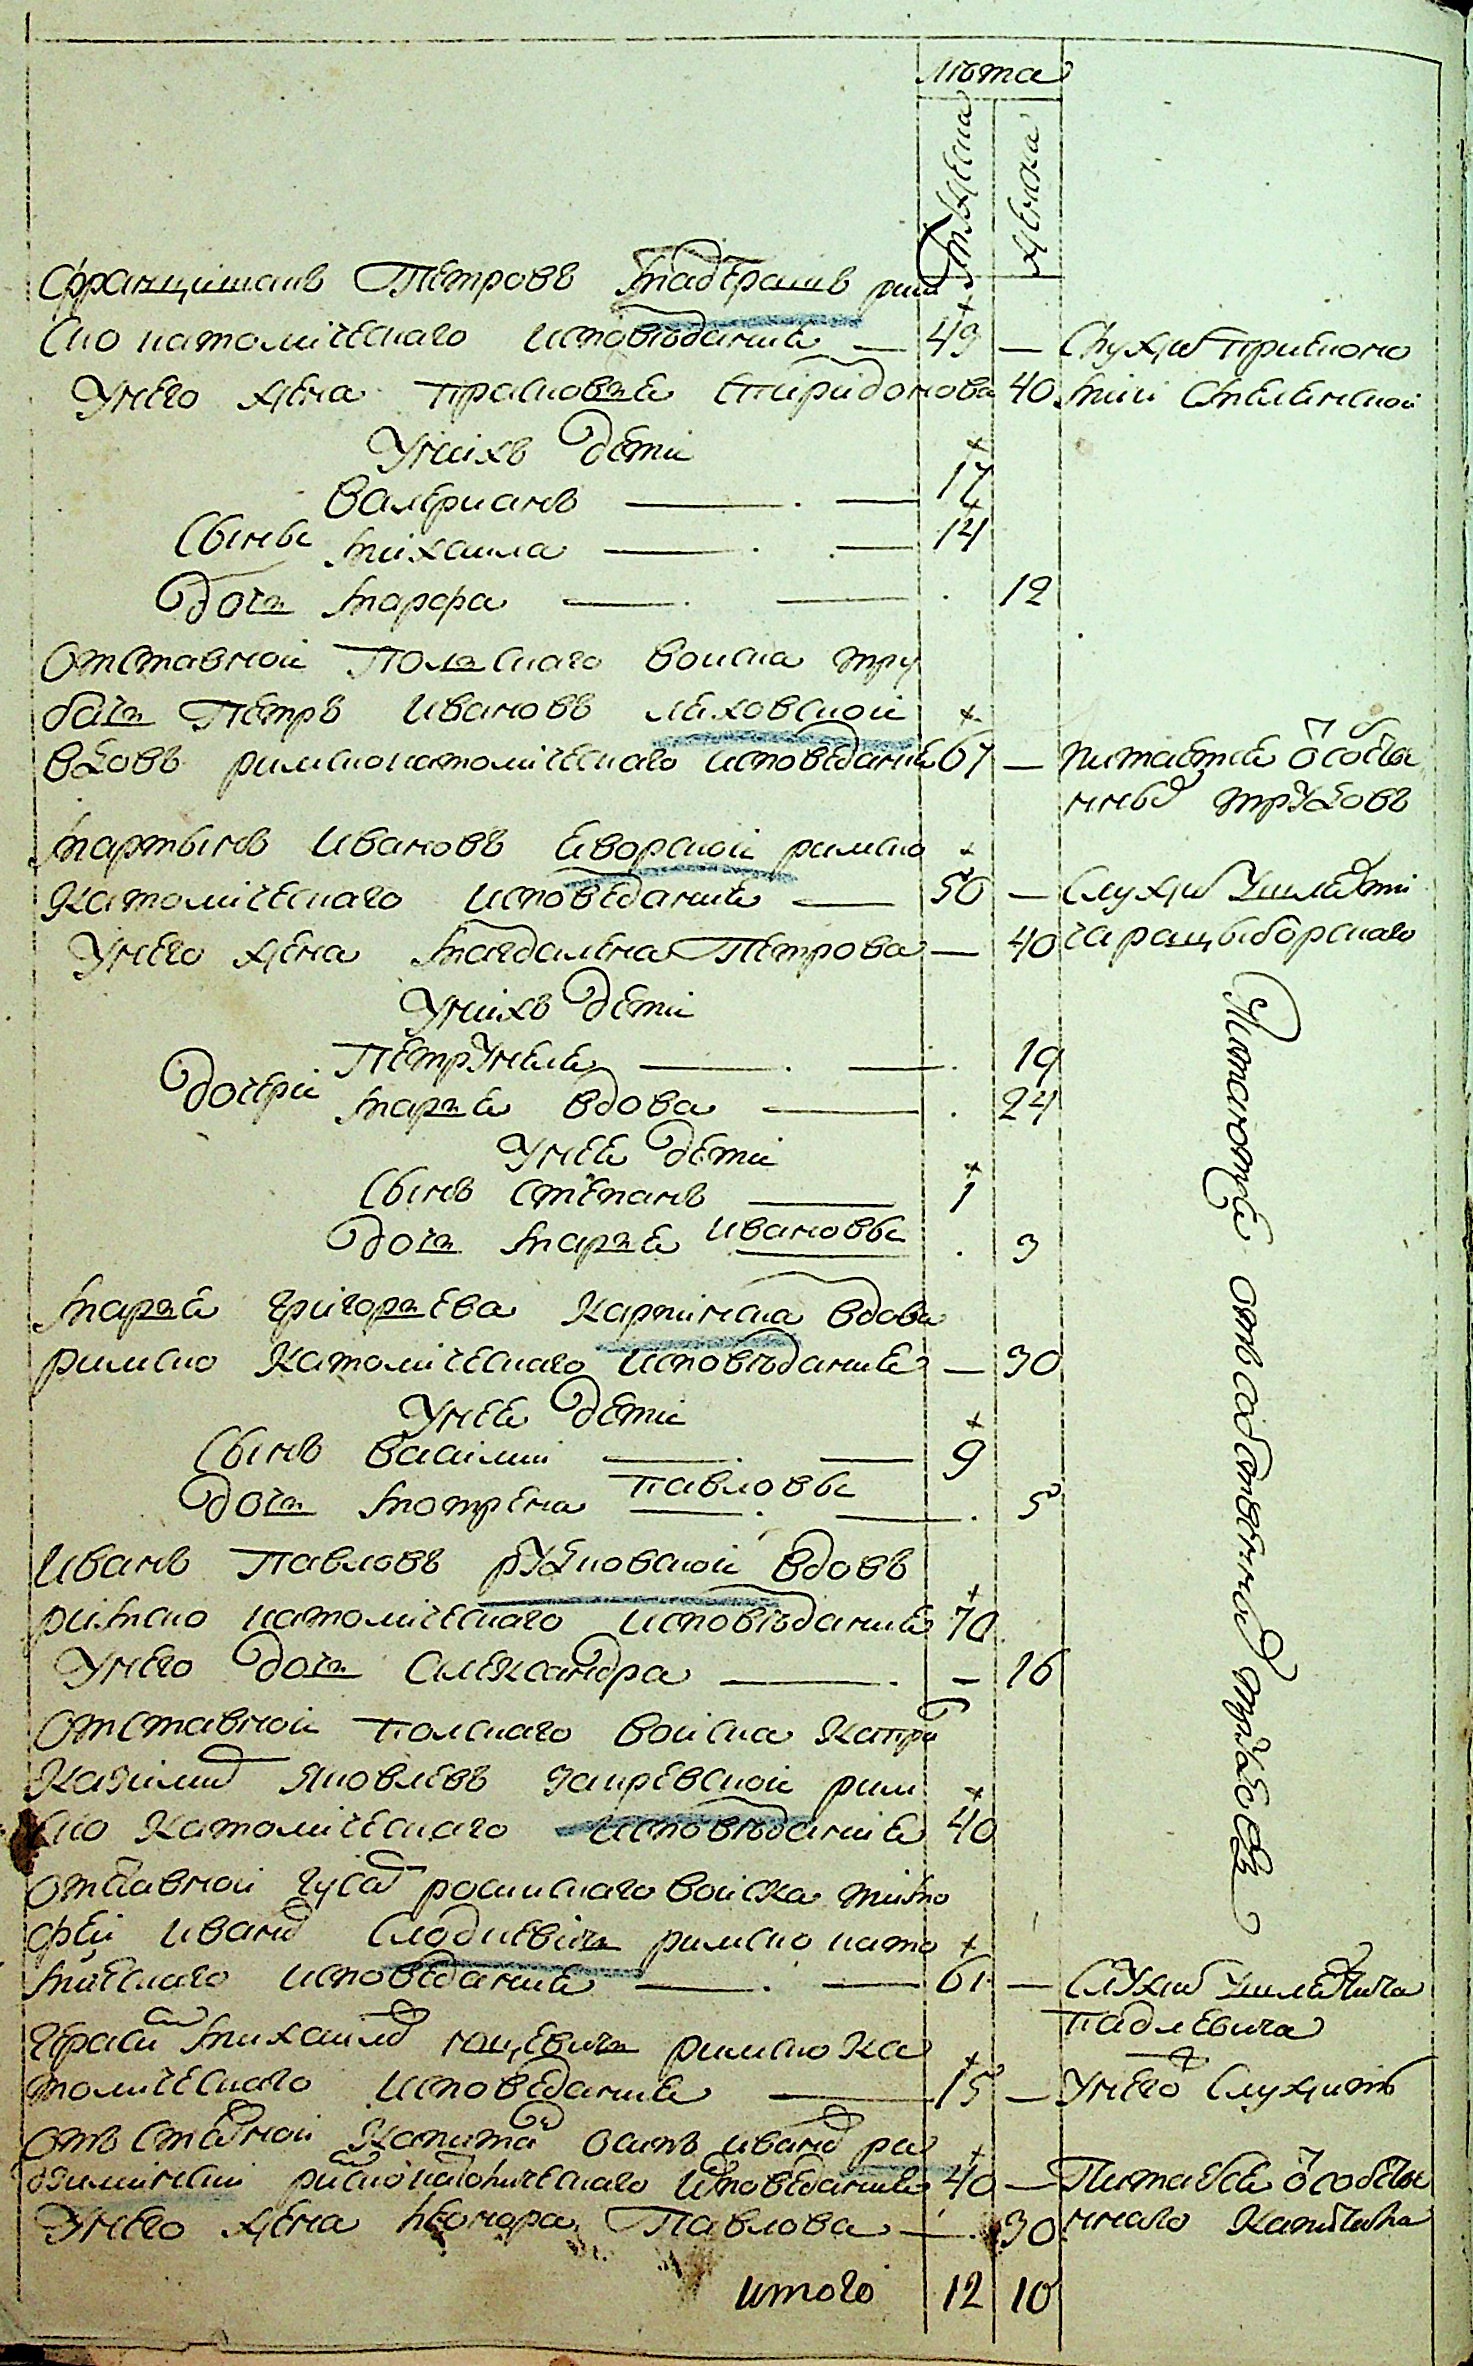 лѣта
мужеска
женска
Францишакъ Петровъ Мадеракъ рим
ско католическаго исповѣдания — 49 — Служи при еконо
У него жена Прасковья Спиридонова 40 міи Смелянской
У нихъ дети
Валериянъ — 17
Сыны Михаила — 14
дочь Марфа — 12
Отставной Польскаго войска тру
бачь Петръ Ивановъ Ляховской
вдовъ римскокатолическаго исповедания 67 — питается о собстве
нныхъ трудовъ
Мартынъ Ивановъ Яворской римско
Католическаго исповедания — 50 — Служи у шляхти
У него жена Магдалена Петрова — 40
У нихъ дети
Петрунеля — 19
Дочери Марья вдова — 24
У нее дети
Сынъ Степанъ — 1
дочь Марья Ивановы 3
Марья Григорьева Карпинска вдова
римско Католическаго исповѣдания — 30
У нее дети
Сынъ Василий — 9
дочь Мотрена Павловы 5
Иванъ Павловъ Рудковской вдовъ
римско католическаго исповѣдания 70
У него дочь Александра — 16
Отставной полскаго войска капра
Казими Яковлевъ рим
ско Католическаго исповѣдания 40
Отставной гуса росийскаго войска Тимо
фей Ивано Слодкевичь римско като
лическаго исповедания — 61 — Служи у шляхтича
Падлевича
Гераси Михайло римско ка
толическаго исповедания — 15 — У него Служитъ
Отъ ставной Капита Осипъ Ивано ра
дзиминский римско католическаго исповедания 40 — Питаеся о собстве
У него жена Леонора Павлова — 30 ннаго Капитала
Питаются отъ собственныхъ трудовъ
итого 12 10